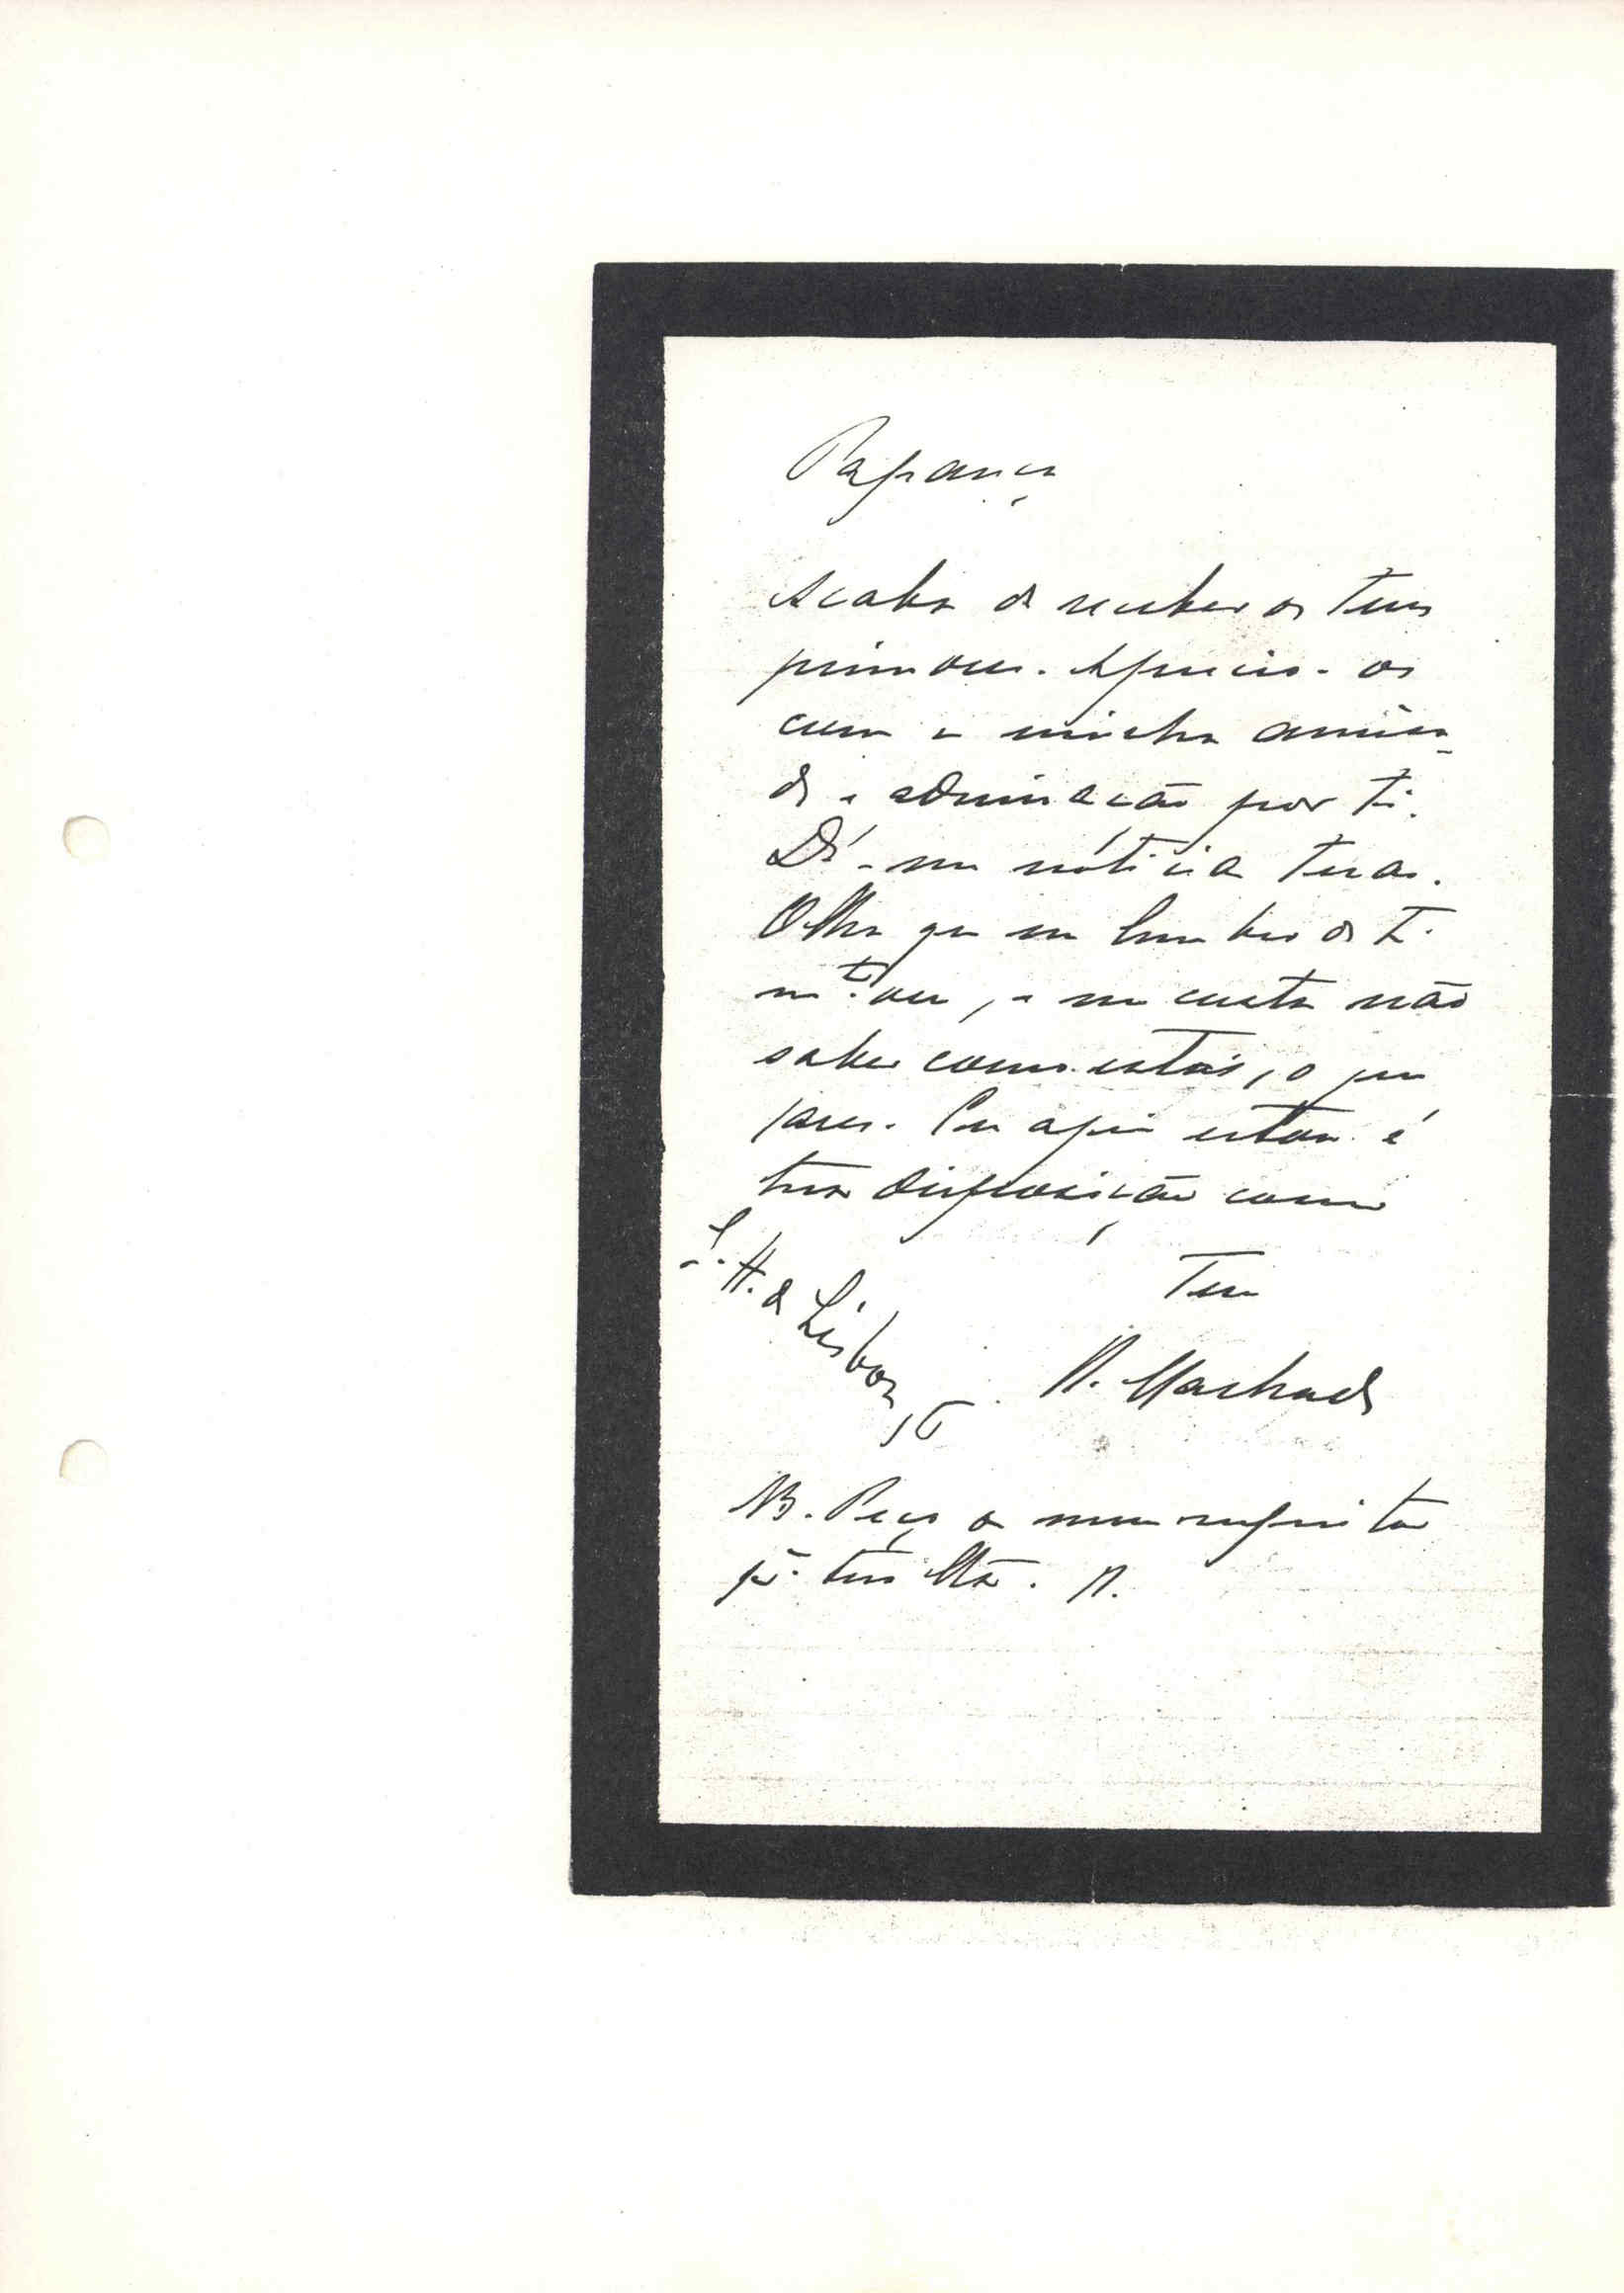 Papança
Acabo de receber os teus
primores. Aprecio-os
com a minha amiza-
de e admiração por ti.
Dá-me noticia tuas.
Olha que me lembro de ti
m.to ou, e me custa não
saber como estás, o que
fazes. Eu aqui estou á
tua disposição como
Teu
H. de Lisboa
B. Machado
NB. Peço o meu respeito
p.a tua